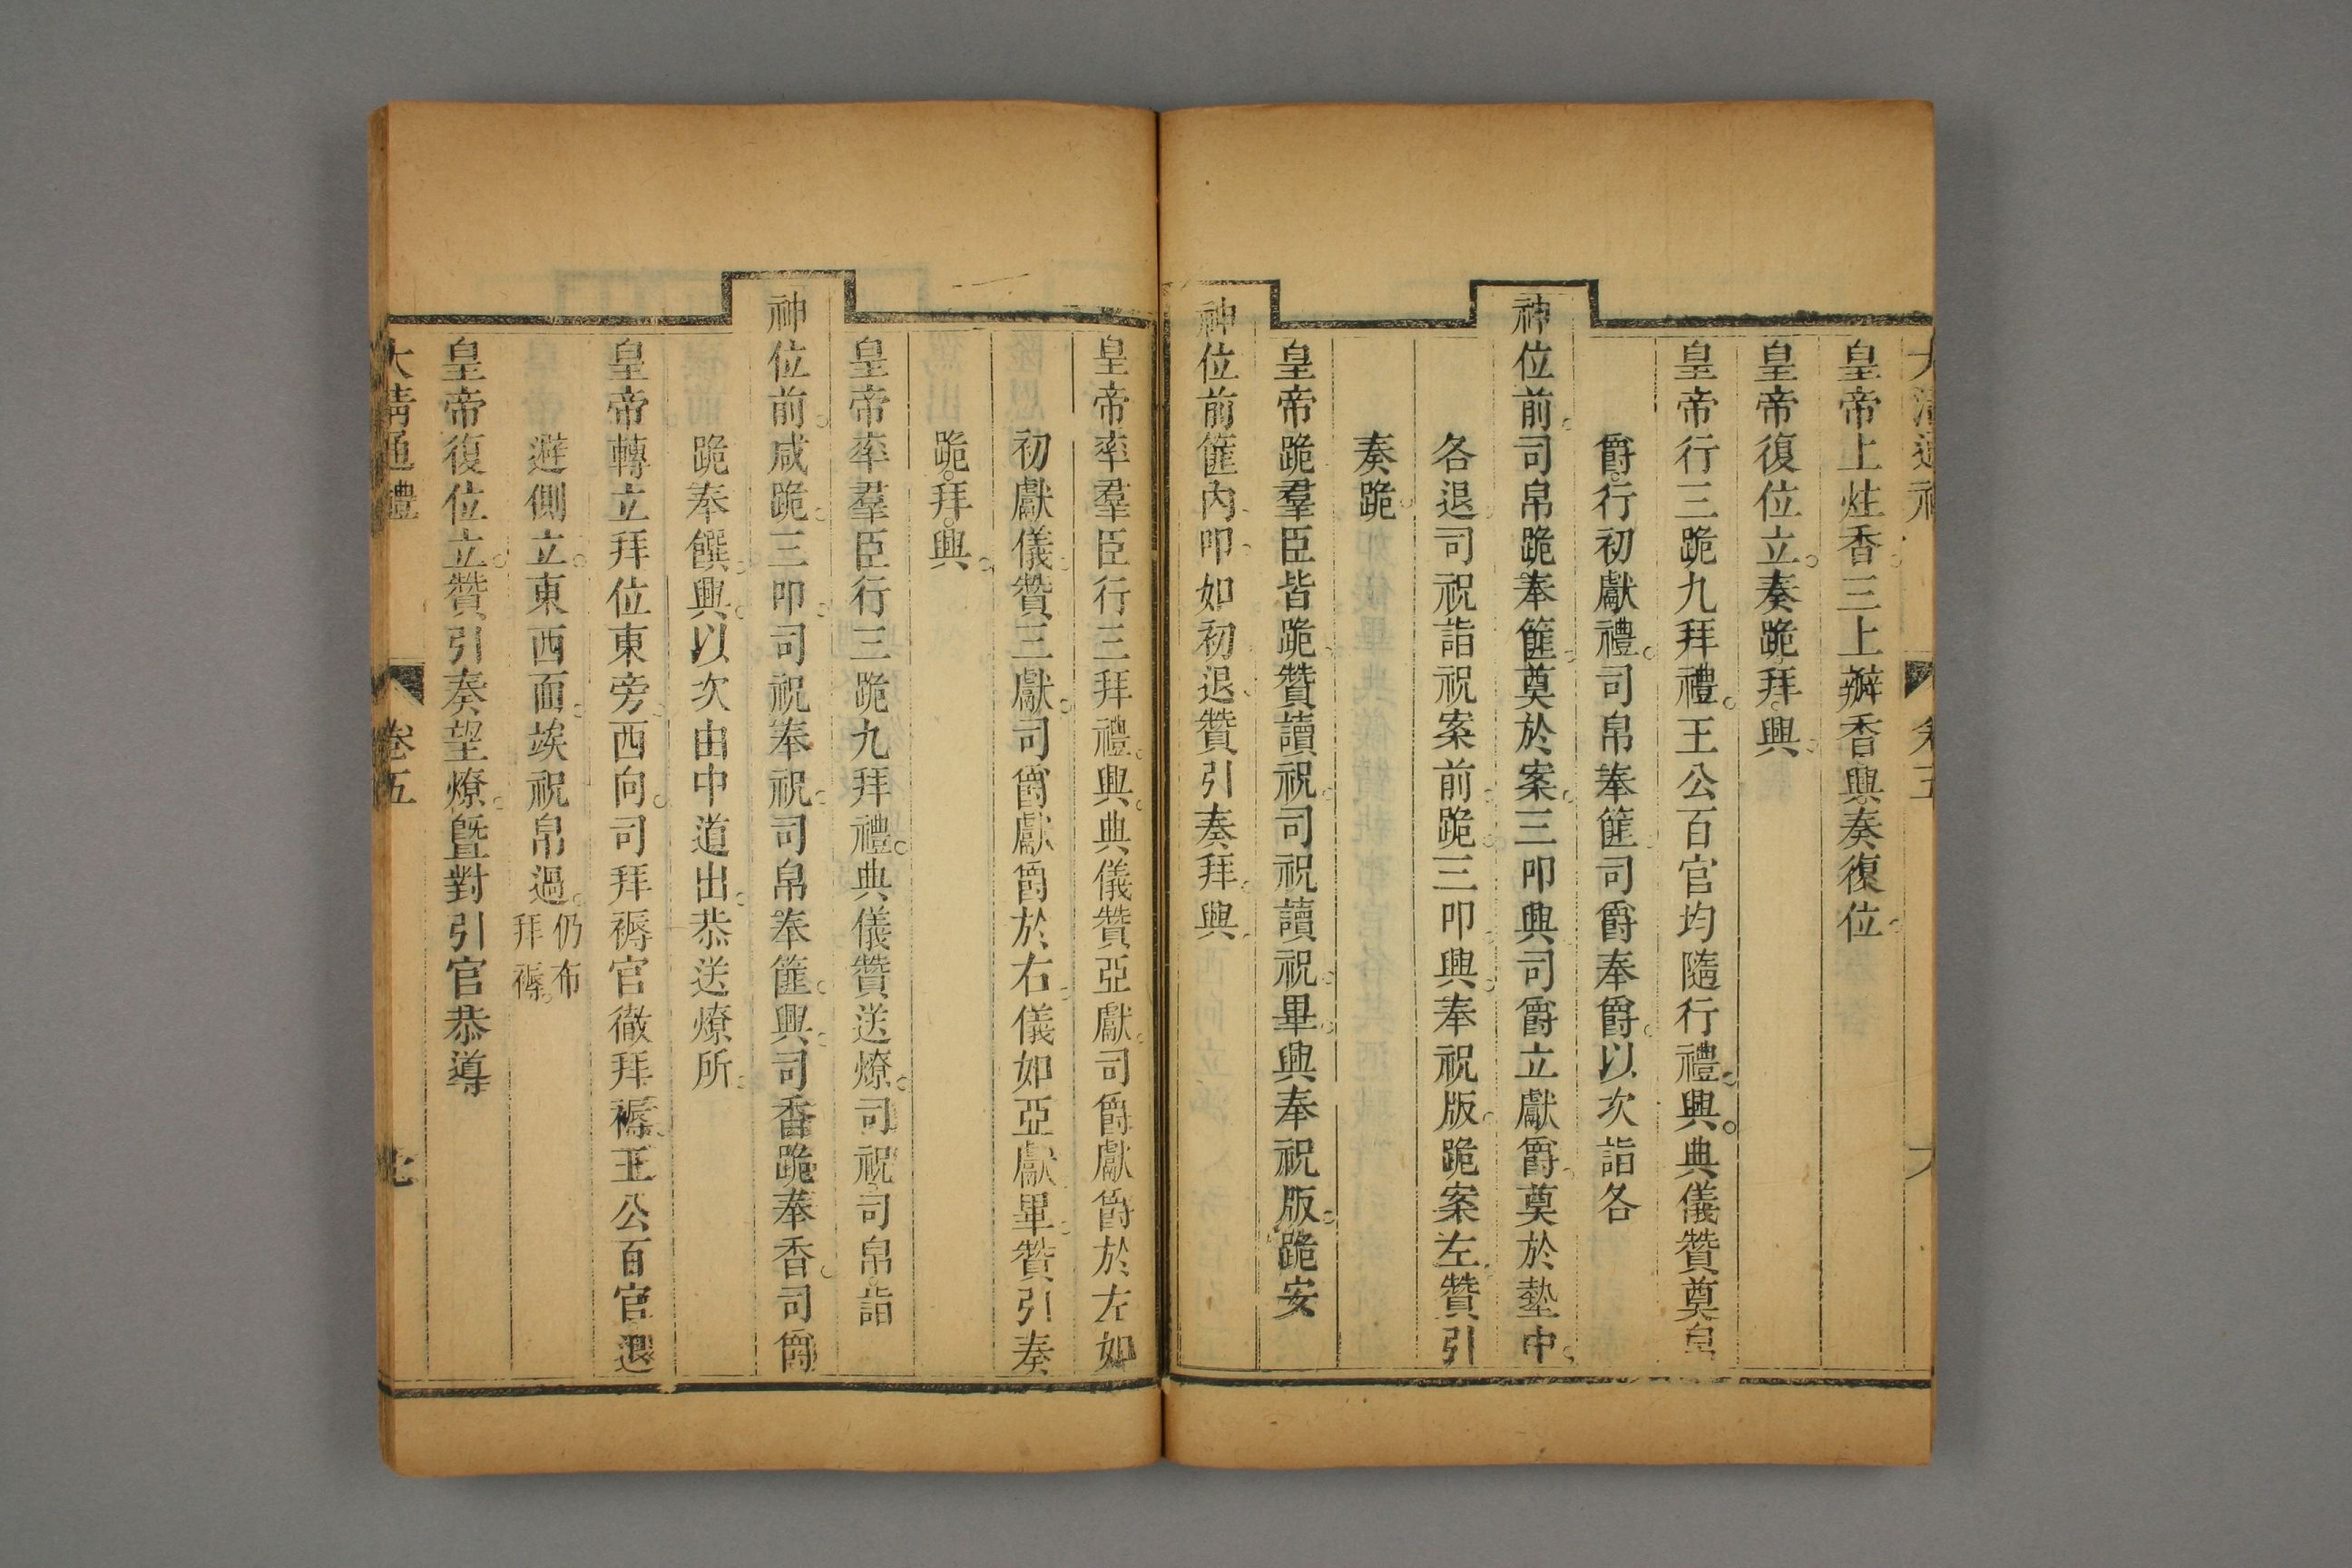 皇帝上炷香三上瓣香興奏復位
皇帝復位立奏跪拜興
皇帝行三跪九拜禮王公百官均隨行禮興典儀贊奠帛
爵行初獻禮司帛奉篚司爵奉爵以次詣各
神位前司帛跪奉篚奠於案三叩興司爵立獻爵奠於墊中
各退司祝詣祝案前跪三叩興奉祝版跪案左贊引
奏跪
皇帝跪羣臣皆跪贊讀祝司祝讀祝畢興奉祝版跪安
神位前篚內叩如初退贊引奏拜興
皇帝率羣臣行三拜禮興典儀贊亞獻司爵獻爵於左如
初獻儀贊三獻司爵獻爵於右儀如亞獻畢贊引奏
跪拜興
皇帝率羣臣行三跪九拜禮典儀贊送燎司祝司帛詣
神位前咸跪三叩司祝奉祝司帛奉篚興司香跪奉香司爵
跪奉饌興以次由中道出恭送燎所
皇帝轉立拜位東旁西向司拜褥官徹拜褥王公百官退
避側立東西面竢祝帛過仍布
拜褥
皇帝復位立贊引奏望燎曁對引官恭導
大清通禮
卷五